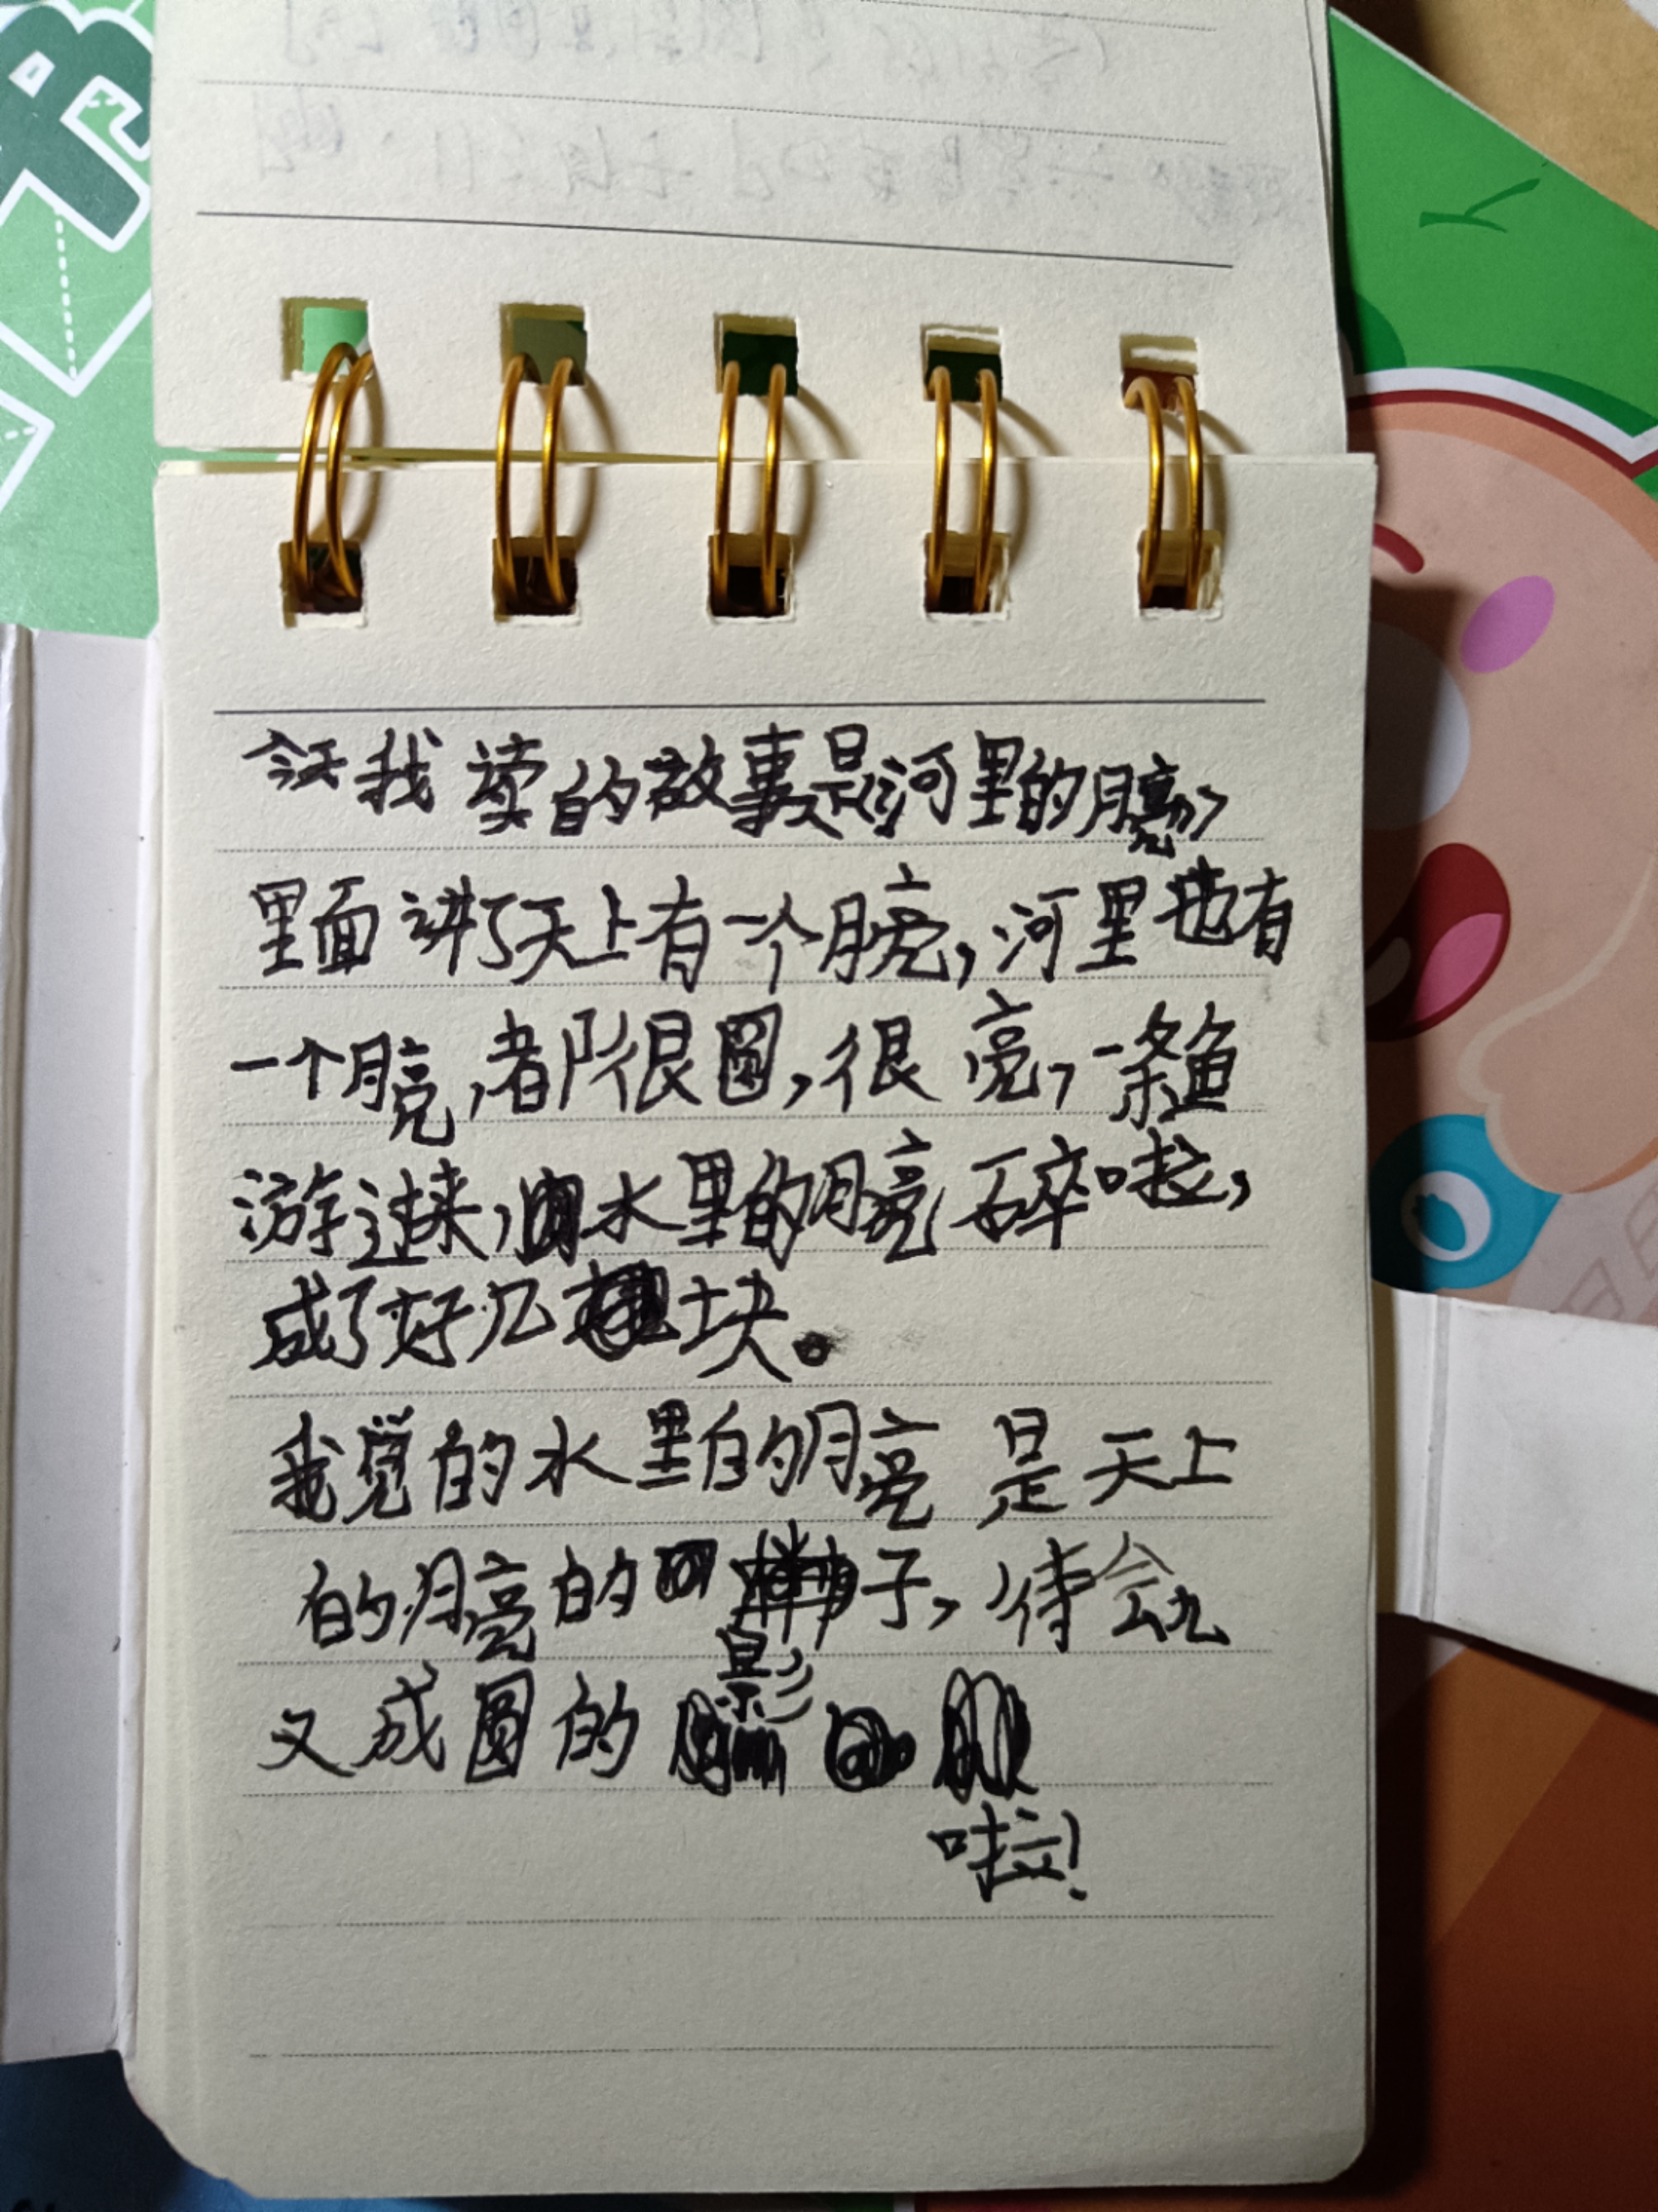 今天我读的故事是《河里的月亮》
里面讲了天上有一个月亮,河里也有
一个月亮,都很圆,很亮,一条鱼
游过来,水里的月亮碎啦,
成了好几块。
我觉的水里的月亮是天上
的月亮的影子,待会儿
又成圆的
啦!